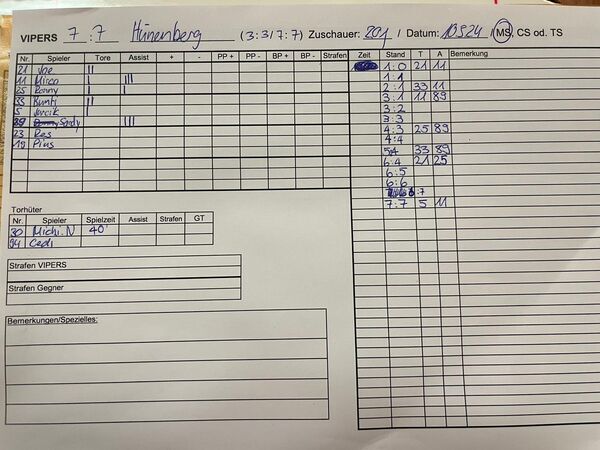 VIPERS 7 : 7 Hünenberg (3:3/7:7) Zuschauer: 201 / Datum: 10524 / MS, CS od. TS
Nr. Spieler Tore Assist + - PP + PP - BP + BP - Strafen
21 Joe II
11 Mirco I III
25 Ronny I I
33 Bünti II
5 Jorik I
89 Sandy III
23 Res
19 Pius
Torhüter
Nr. Spieler Spielzeit Assist Strafen GT
30 Michi. N 40'
94 Cedi
Strafen VIPERS
Strafen Gegner
Bemerkungen/Spezielles:
Zeit Stand T A Bemerkung
1:0 21 11
1:1
2:1 33 11
3:1 11 89
3:2
3:3
4:3 25 89
4:4
5:4 33 89
6:4 21 25
6:5
6:6
6:7
7:7 5 11